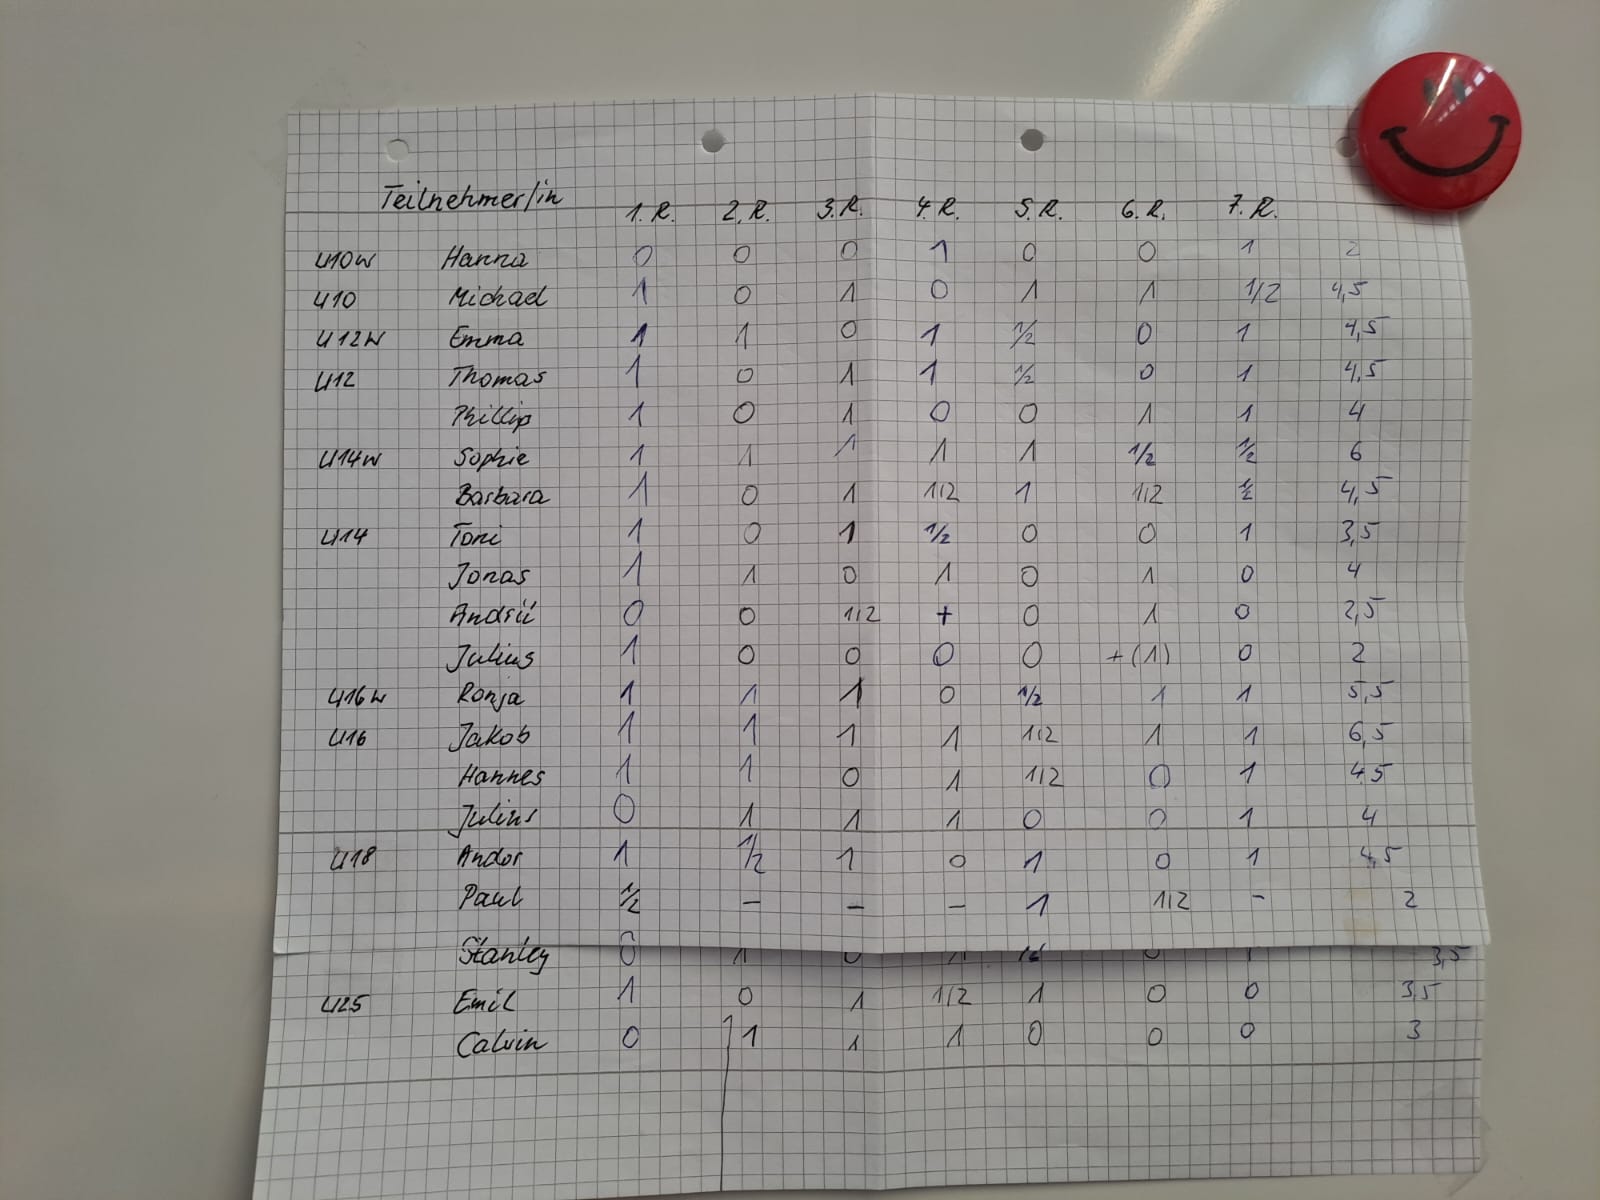 Teilnehmer/in 1. R. 2. R. 3. R. 4. R. 5. R. 6. R. 7. R.
U10W Hanna 0 0 0 1 0 0 1 2
U10 Michael 1 0 1 0 1 1 1/2 4,5
U12W Emma 1 1 0 1 1/2 0 1 4,5
U12 Thomas 1 0 1 1 1/2 0 1 4,5
Phillip 1 0 1 0 0 1 1 4
U14W Sophie 1 1 1 1 1 1/2 1/2 6
Barbara 1 0 1 1/2 1 1/2 1/2 4,5
U14 Toni 1 0 1 1/2 0 0 1 3,5
Jonas 1 1 0 1 0 1 0 4
Andrii 0 0 1/2 + 0 1 0 2,5
Julius 1 0 0 0 0 +(1) 0 2
U16W Ronja 1 1 1 0 1/2 1 1 5,5
U16 Jakob 1 1 1 1 1/2 1 1 6,5
Hannes 1 1 0 1 1/2 0 1 4,5
Julius 0 1 1 1 0 0 1 4
U18 Andor 1 1/2 1 0 1 0 1 4,5
Paul 1/2 - - - 1 1/2 - 2
Stanley 0 1 0 1 0 1 3,5
U25 Emil 1 0 1 1/2 1 0 0 3,5
Calvin 0 1 1 1 0 0 0 3